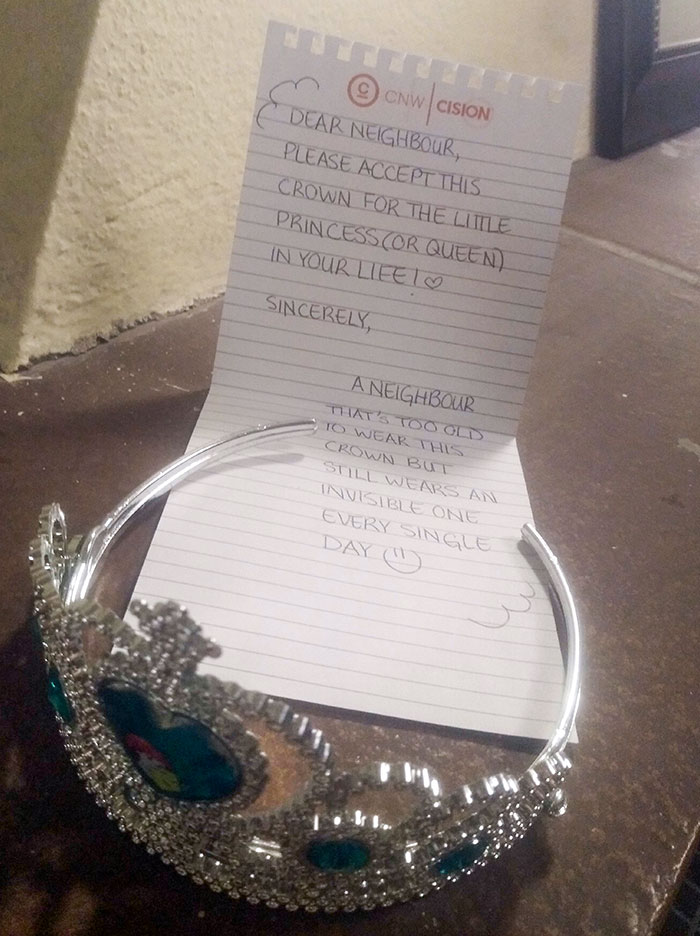 © CNW | CISION
DEAR NEIGHBOUR,
PLEASE ACCEPT THIS
CROWN FOR THE LITTLE
PRINCESS (OR QUEEN)
IN YOUR LIFE! ♡
SINCERELY,
A NEIGHBOUR
THAT'S TOO OLD
TO WEAR THIS
CROWN BUT
STILL WEARS AN
INVISIBLE ONE
EVERY SINGLE
DAY